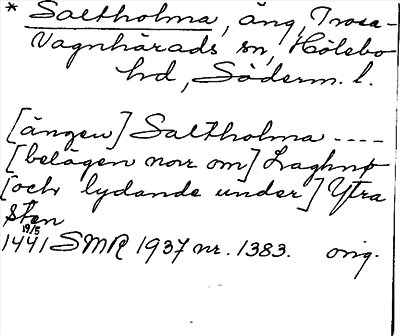 * Saltholma, äng, Trosa-
Vagnhärads sn, Hölebo
hd, Söderm. l.
[ängen] Saltholma ----
[belägen norr om] Laghnø
[och lydande under] Ytra
Sten
19/5
1441 SMR 1937 nr. 1383. orig.